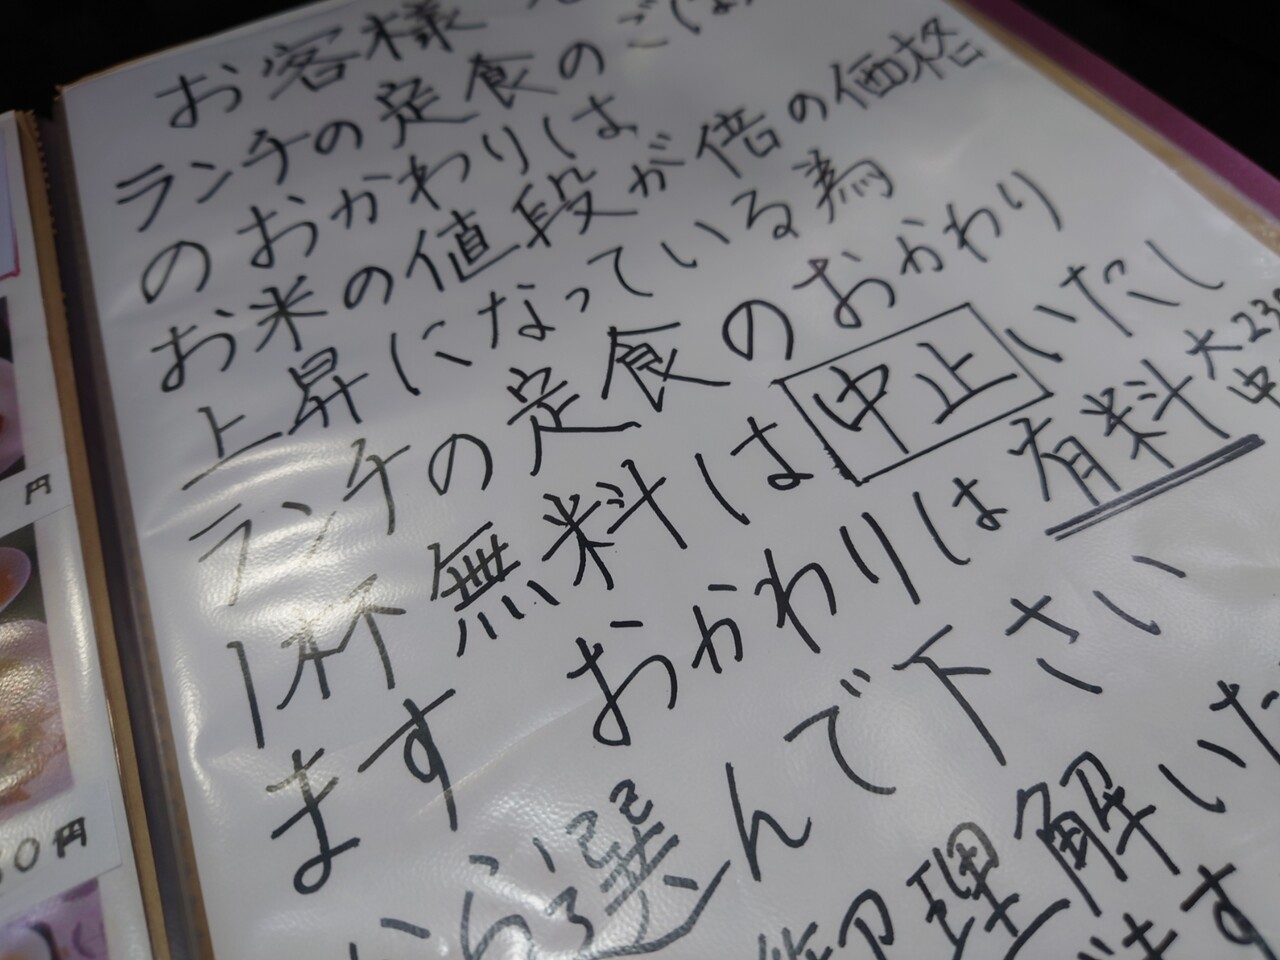 お客様
ランチの定食のごはん
のおかわりは
お米の値段が倍の価格
上昇になっている為
ランチの定食のおかわり
1杯無料は中止いたし
ます おかわりは有料 大23
中
から選んで下さい
御理解いた
ます
円
0円